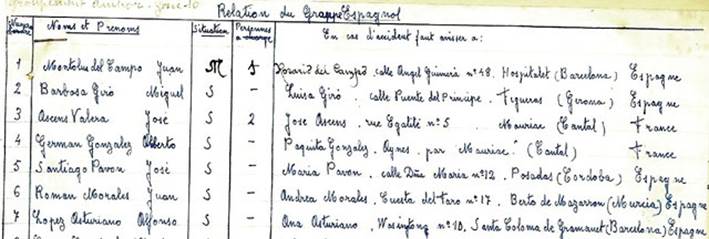 Relation du Groupe Espagnol
Noms et Prenoms Situation Personnes a charge En cas d'accident faut aviser a:
1 Montolus del Campo Juan M 1 Rosario del Campo calle Angel Guimerá nº 48. Hospitalet (Barcelona) Espagne
2 Barbosa Giró Miguel S - Luisa Giró. calle Puente del Principe. Figueras (Gerona) Espagne
3 Ascens Valera José S 2 Jose Ascens. rue Egalité nº 5. Mauriac (Cantal) France
4 German Gonzalez Alberto S - Paquita Gonzalez. Aynes. par Mauriac (Cantal) France
5 Santiago Pavon José S - Maria Pavon. calle Dña Maria nº 12. Posadas (Cordoba) Espagne
6 Roman Morales Juan S - Andrea Morales. Cuesta del faro nº 17. Berto de Mazarron (Murcia) Espagne
7 Lopez Asturiano Alfonso S - Ana Asturiano. Wasingtong nº 10, Santa Coloma de Gramanet (Barcelona) Espagne